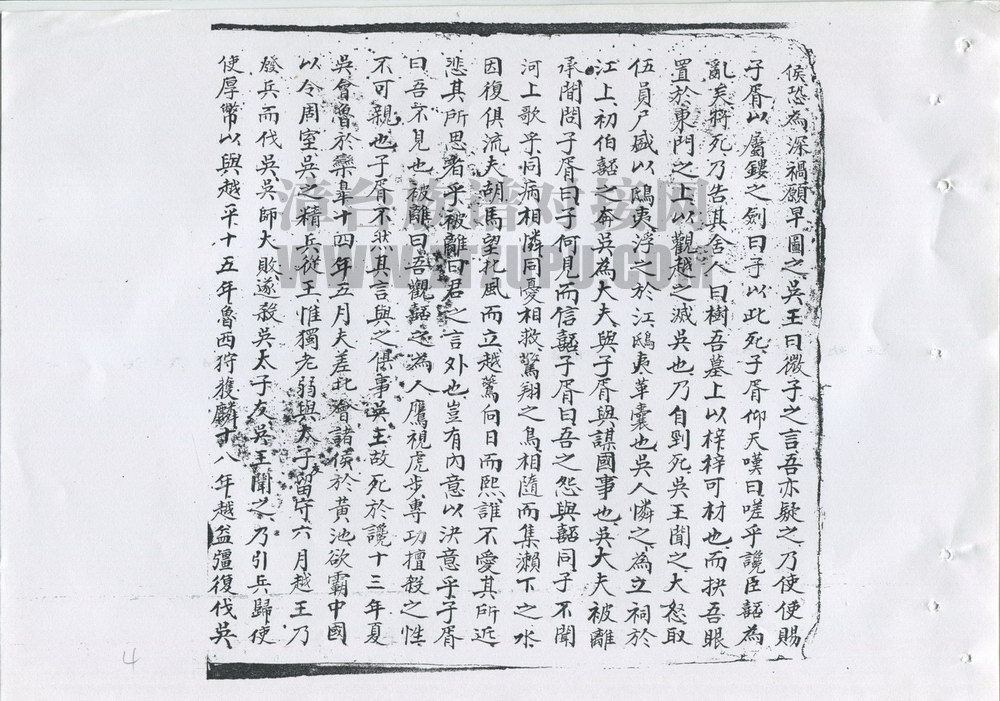 侯恐為深禍願早圖之吳王曰微子之言吾亦疑之乃使使賜
子胥以屬鏤之劍曰子以此死子胥仰天嘆曰嗟乎讒臣嚭為
亂矣將死乃告其舍人曰樹吾墓上以梓梓可材也而抉吾眼
置於東門之上以觀越之滅吳也乃自剄死吳王聞之大怒取
伍員尸盛以鴟夷浮之於江鴟夷革囊也吳人憐之為立祠於
江上初伯嚭之奔吳為大夫與子胥與謀國事也吳大夫被離
承閒問子胥曰子何見而信嚭子胥曰吾之怨與嚭同子不聞
河上歌乎同病相憐同憂相救驚翔之鳥相隨而集瀨下之水
因復俱流夫胡馬望北風而立越鷰向日而熙誰不愛其所近
悲其所思者乎被離曰君之言外也豈有內意以決意乎子胥
曰吾不見也被離曰吾觀嚭之為人鷹視虎步專功擅殺之性
不可親也子胥不然其言與之俱事吳王故死於讒十三年夏
吳會魯於橐皋十四年五月夫差北會諸侯於黃池欲霸中國
以令周室吳之精兵從王惟獨老弱與太子留守六月越王乃
發兵而伐吳吳師大敗遂殺吳太子友吳王聞之乃引兵歸使
使厚幣以與越平十五年魯西狩獲麟十八年越益彊復伐吳
4